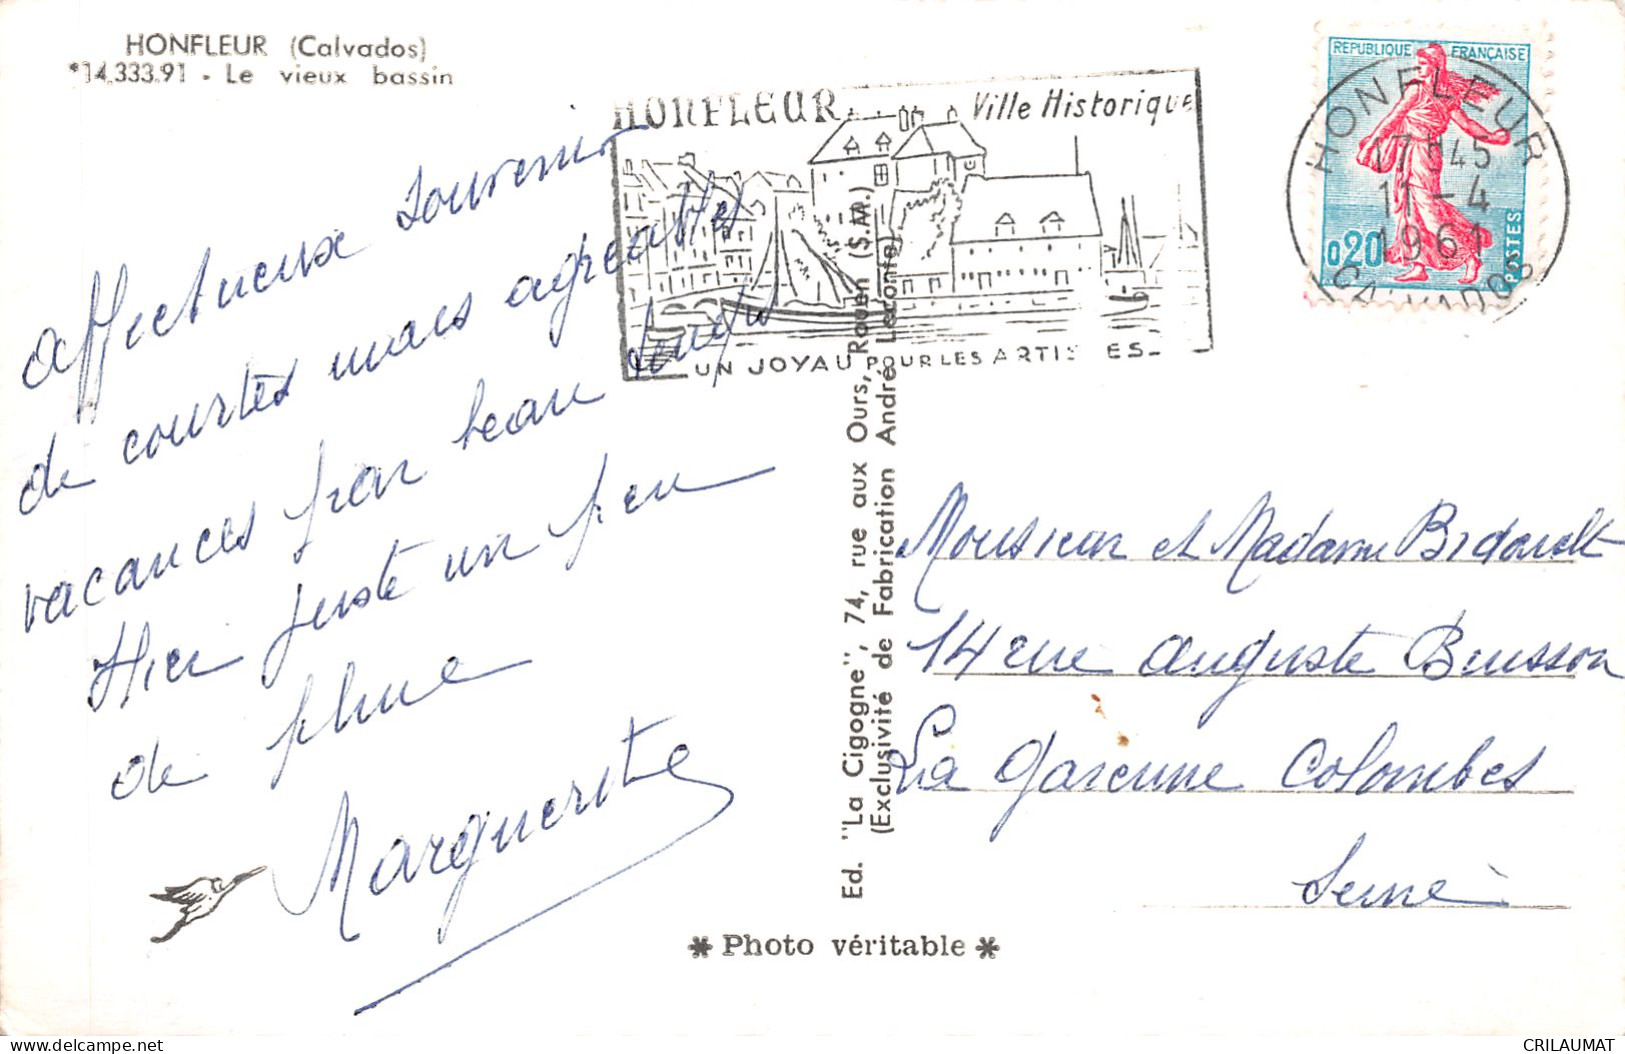 HONFLEUR (Calvados)
*14.333.91 - Le vieux bassin
Affectueux souvenir
de courtes mais agreables
vacances par beau temps
Hier juste un peu
de pluie
Marguerite
HONFLEUR Ville Historique
UN JOYAU POUR LES ARTIS ES
REPUBLIQUE FRANÇAISE
0,20
POSTES
HONFLEUR
17H45
11-4
1961
CALVADOS
Ed. "La Cigogne", 74, rue aux Ours, Rouen (S.M.)
(Exclusivité de Fabrication André Leconte)
Monsieur et Madame Bidault
14 rue Auguste Buisson
La Garenne Colombes
Seine
* Photo véritable *
CRILAUMAT